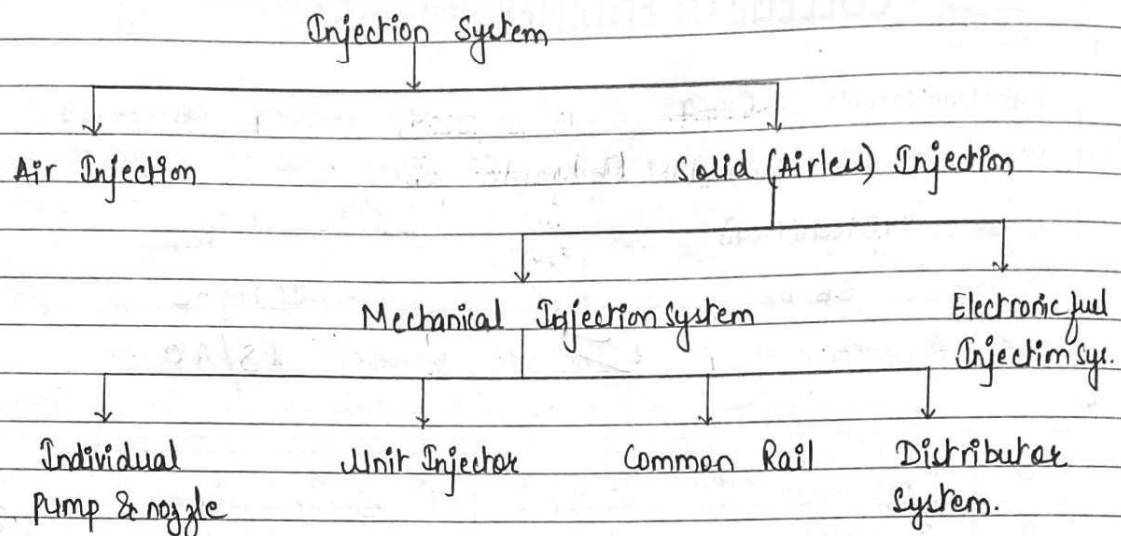 Injection System
Air Injection
Solid (Airless) Injection
Mechanical Injection system
Electronic fuel
Injection sys.
Individual
pump & nozzle
Unit Injector
Common Rail
Distributor
system.